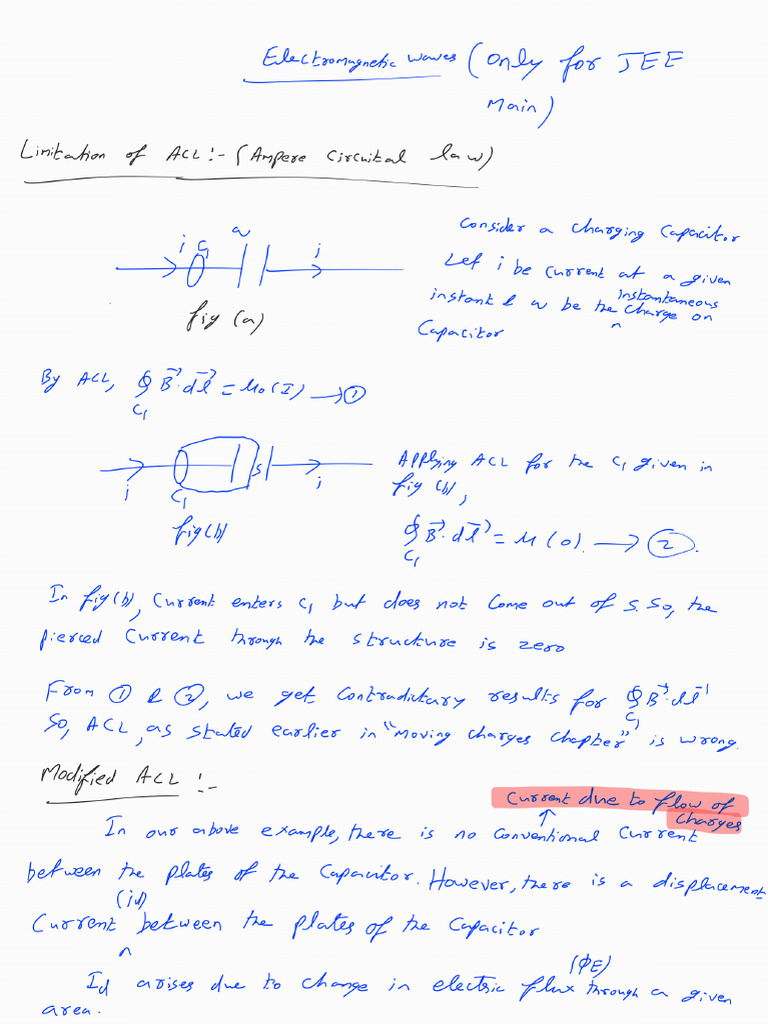 Electromagnetic waves (only for JEE
Main)
Limitation of ACL:- (Ampere circuital law)
i C₁ q i
fig (a)
Consider a charging capacitor
Let i be current at a given
instant & q be the instantaneous charge on
Capacitor
By ACL, ∮ B⃗·dl⃗ = μ₀(I) → ①
C₁
i C₁ S i
fig(b)
Applying ACL for the C₁ given in
fig (b),
∮ B⃗·dl⃗ = μ(0). → ②.
C₁
In fig(b), Current enters C₁ but does not come out of S. So, the
pierced current through the structure is zero
From ① & ②, we get contradictary results for ∮ B⃗·dl⃗
C₁
So, ACL, as stated earlier in "Moving charges chapter" is wrong.
Modified ACL :-
Current due to flow of
charges
In our above example, there is no conventional current
between the plates of the Capacitor. However, there is a displacement
Current (id) between the plates of the Capacitor
Id arises due to change in electric flux (ΦE) through a given
area.